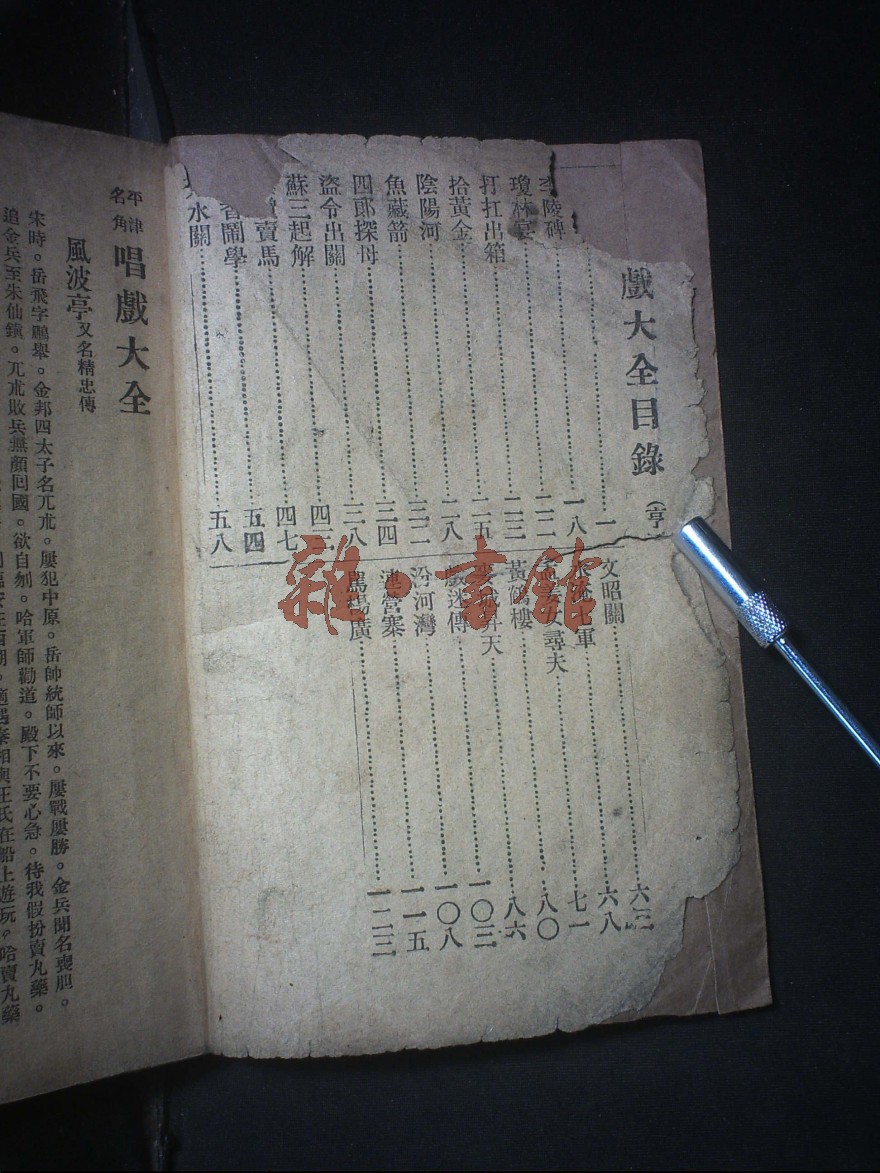 戲大全目錄（亨
一
李陵碑 一八
瓊林宴 二二
打扛出箱 二三
拾黃金 二五
陰陽河 二八
魚藏箭 三二
四郎探母 三四
盜令出關 三八
蘇三起解 四三
賣馬 四七
香鬧學 五四
水關 五八
文昭關 六三
充軍 六八
孟姜女尋夫 七一
黃鶴樓 八〇
麥城昇天 八六
戲迷傳 一〇三
汾河灣 一〇八
連營寨 一一五
罵楊廣 一二三
平津名角 唱戲大全
風波亭 又名精忠傳
宋時。岳飛字鵬舉。金邦四太子名兀朮。屢犯中原。岳帥統師以來。屢戰屢勝。金兵聞名喪胆。
追金兵至朱仙鎮。兀朮敗兵無顏回國。欲自刎。哈軍師勸道。殿下不要心急。待我假扮賣丸藥。
臨安在西湖。適遇秦相與王氏在船上遊玩。哈賣丸藥
雜·書館